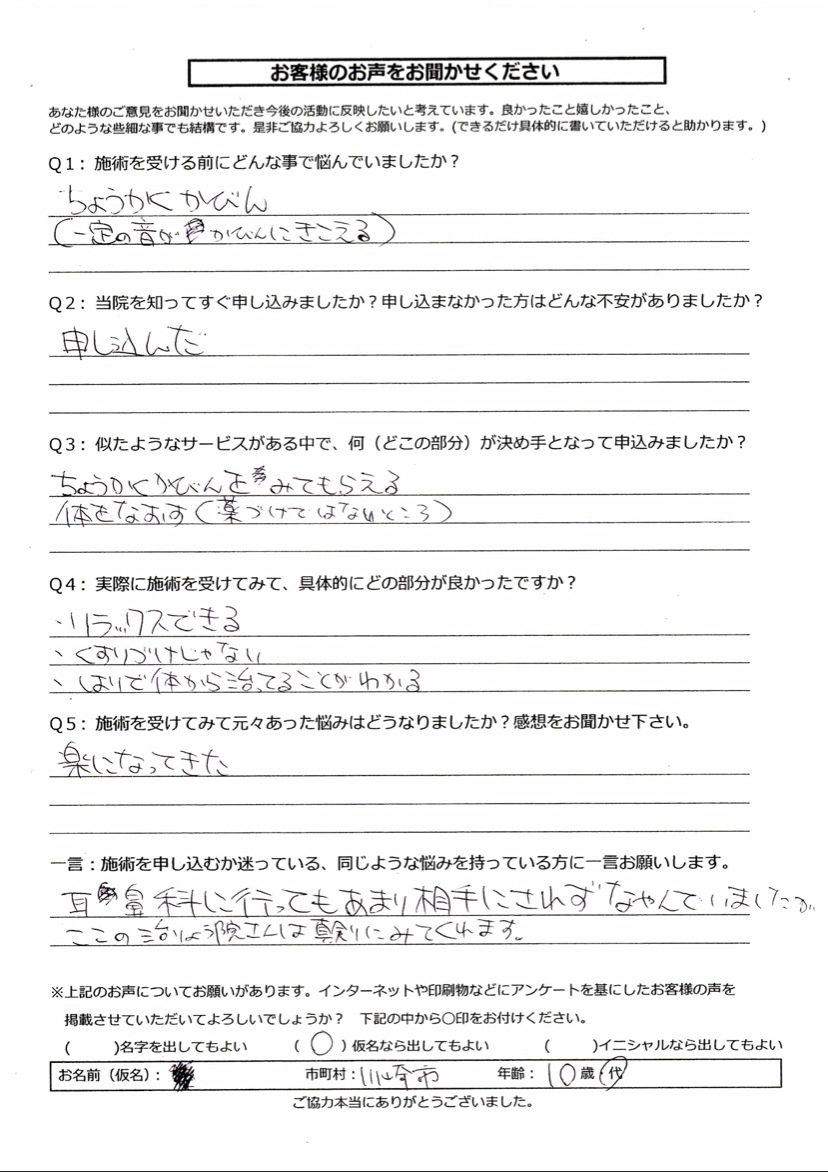 お客様のお声をお聞かせください
あなた様のご意見をお聞かせいただき今後の活動に反映したいと考えています。良かったこと嬉しかったこと、
どのような些細な事でも結構です。是非ご協力よろしくお願いします。(できるだけ具体的に書いていただけると助かります。)
Q1：施術を受ける前にどんな事で悩んでいましたか？
ちょうかくかびん
(一定の音がかびんにきこえる)
Q2：当院を知ってすぐ申し込みましたか？申し込まなかった方はどんな不安がありましたか？
申し込んだ
Q3：似たようなサービスがある中で、何（どこの部分）が決め手となって申込みましたか？
ちょうかくかびんをみてもらえる
体をなおす(薬づけではないところ)
Q4：実際に施術を受けてみて、具体的にどの部分が良かったですか？
、リラックスできる
、くすりづけじゃない
、はりで体から治ってることがわかる
Q5：施術を受けてみて元々あった悩みはどうなりましたか？感想をお聞かせ下さい。
楽になってきた
一言：施術を申し込むか迷っている、同じような悩みを持っている方に一言お願いします。
耳鼻科に行ってもあまり相手にされずなやんでいましたが、
ここの治りょう院さんは真剣にみてくれます。
※上記のお声についてお願いがあります。インターネットや印刷物などにアンケートを基にしたお客様の声を
掲載させていただいてよろしいでしょうか？ 下記の中から〇印をお付けください。
( )名字を出してもよい (〇)仮名なら出してもよい ( )イニシャルなら出してもよい
お名前（仮名）： 市町村：川崎市 年齢：10歳代
ご協力本当にありがとうございました。